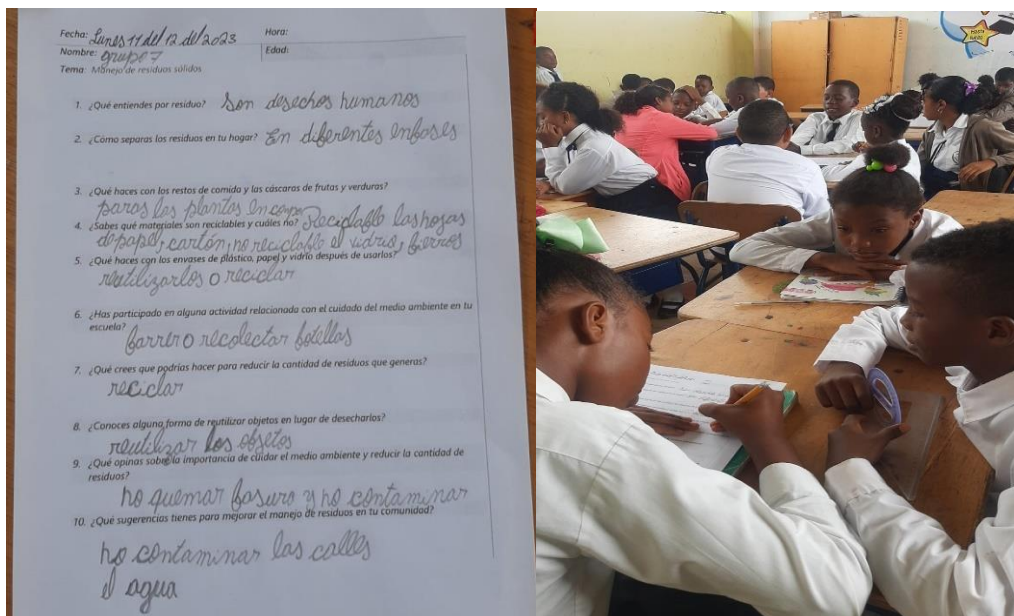 Fecha: Lunes 11 del 12 del 2023 Hora:
Nombre: grupo 7 Edad:
Tema: Manejo de residuos sólidos
1. ¿Qué entiendes por residuo? Son desechos humanos
2. ¿Cómo separas los residuos en tu hogar? En diferentes enbases
3. ¿Qué haces con los restos de comida y las cáscaras de frutas y verduras?
paras las plantas En campo
4. ¿Sabes qué materiales son reciclables y cuáles no? Reciclable las hojas
de papel, cartón, no reciclable el vidrio, fierros
5. ¿Qué haces con los envases de plástico, papel y vidrio después de usarlos?
reutilizarlos o reciclar
6. ¿Has participado en alguna actividad relacionada con el cuidado del medio ambiente en tu
escuela?
barrer o recolectar botellas
7. ¿Qué crees que podrías hacer para reducir la cantidad de residuos que generas?
reciclar
8. ¿Conoces alguna forma de reutilizar objetos en lugar de desecharlos?
reutilizar los objetos
9. ¿Qué opinas sobre la importancia de cuidar el medio ambiente y reducir la cantidad de
residuos?
no quemar basura y no contaminar
10. ¿Qué sugerencias tienes para mejorar el manejo de residuos en tu comunidad?
no contaminar las calles
el agua